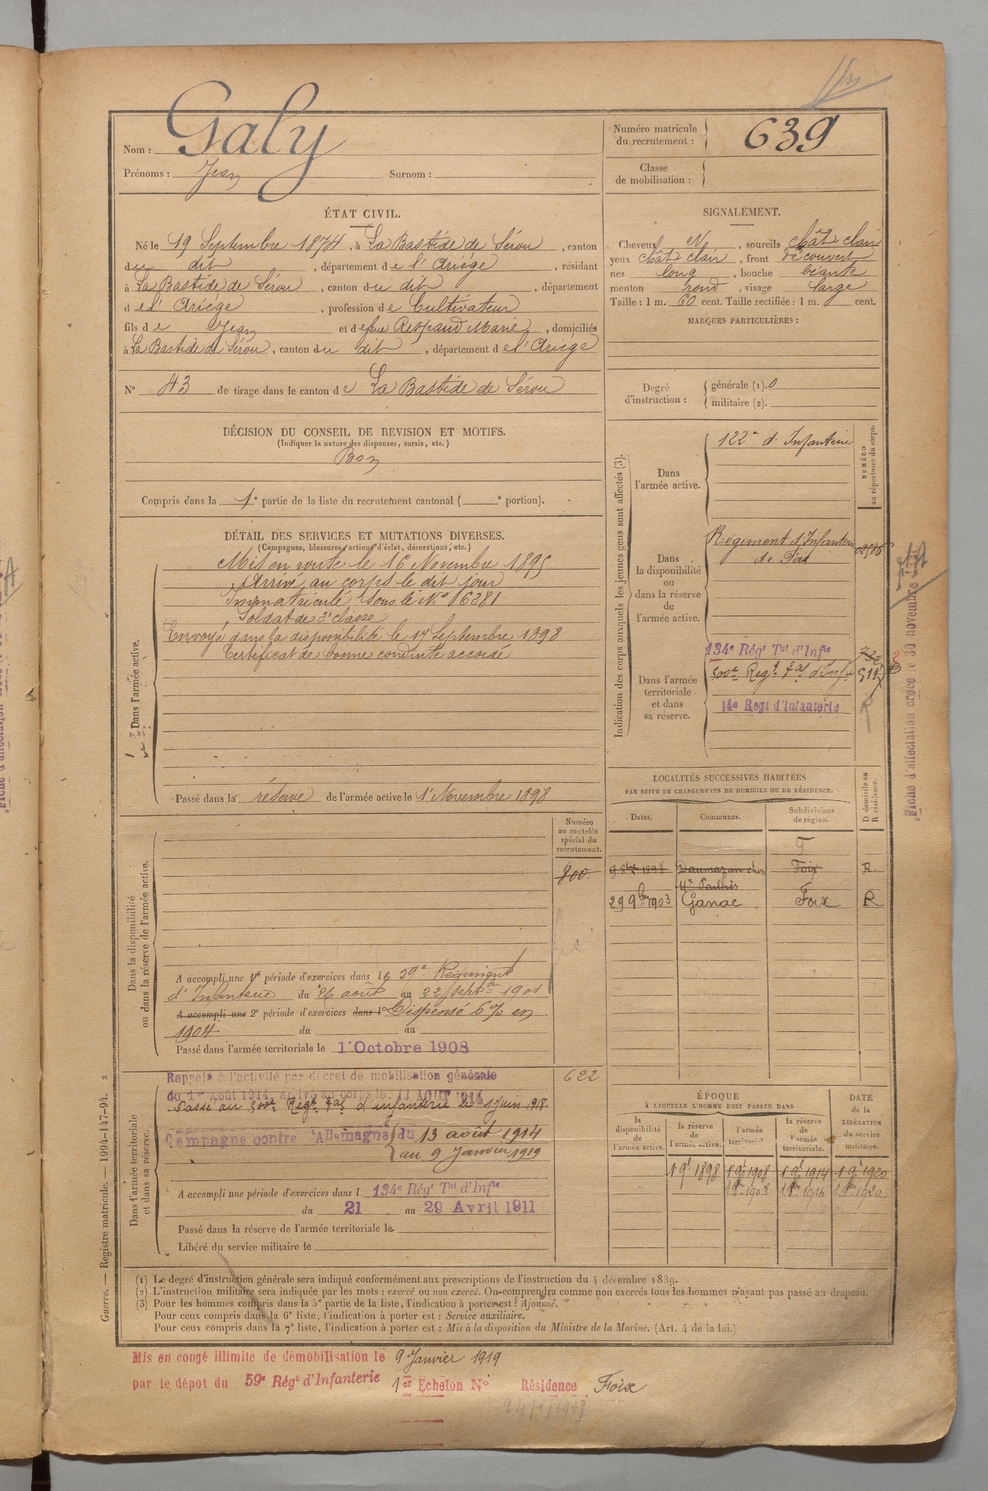 Nom : Galy
Prénoms : Jean Surnom :
Numéro matricule du recrutement : 639
Classe de mobilisation :
ÉTAT CIVIL.
Né le 19 Septembre 1874, à La Bastide de Sérou, canton
du dit, département de l'Ariège, résidant
à La Bastide de Sérou, canton du dit, département
de l'Ariège, profession de Cultivateur
fils de Jean et de feue Respaud Marie, domiciliés
à La Bastide de Sérou, canton du dit, département de l'Ariège
N° 43 de tirage dans le canton de La Bastide de Sérou
SIGNALEMENT.
Cheveux N, sourcils chât clair
yeux chât clair, front découvert
nez long, bouche béante
menton rond, visage large
Taille : 1 m. 60 cent. Taille rectifiée : 1 m. cent.
MARQUES PARTICULIÈRES :
Degré d'instruction : générale (1). 0
militaire (2).
DÉCISION DU CONSEIL DE REVISION ET MOTIFS.
(Indiquer la nature des dispenses, sursis, etc.)
Bon
Compris dans la 1e partie de la liste du recrutement cantonal ( e portion).
DÉTAIL DES SERVICES ET MUTATIONS DIVERSES.
(Campagnes, blessures, actions d'éclat, décorations, etc.)
Dans l'armée active.
Mis en route le 16 Novembre 1895
Arrivé au corps le dit jour
Immatriculé sous le N° 16281
Soldat de 2e classe
Envoyé dans la disponibilité le 17 Septembre 1898
Certificat de bonne conduite accordé
Passé dans la réserve de l'armée active le 1er Novembre 1898
Indication des corps auxquels les jeunes gens sont affectés (3).
NUMÉRO au répertoire du corps.
Dans l'armée active.
122e d'Infanterie
Dans la disponibilité ou dans la réserve de l'armée active.
Régiment d'Infanterie
de Foix
Dans l'armée territoriale et dans sa réserve.
134e Régt Tal d'Infie
500e Regt Tal d'Inf
14e Régt d'Infanterie
LOCALITÉS SUCCESSIVES HABITÉES
PAR SUITE DE CHANGEMENTS DE DOMICILE OU DE RÉSIDENCE.
D domicile ou R résidence.
Dates. Communes. Subdivisions de région.
Daumazan chez Foix R.
Mr Pailhès
29 9bre 1903 Ganac Foix R
Numéro au contrôle spécial du recrutement.
800
Dans la disponibilité ou dans la réserve de l'armée active.
A accompli une 1re période d'exercices dans le 59e Régiment
d'Infanterie du 26 août au 22 Septbre 1901
A accompli une 2e période d'exercices dans l Dispensé 6% en
1904 du au
Passé dans l'armée territoriale le 1er Octobre 1908
Dans l'armée territoriale et dans sa réserve.
Rappelé à l'activité par décret de mobilisation générale 622
du 1er Août 1914, arrivé au corps le 13 AOUT 1914
Passé au 500e Régt Tal d'infanterie le 1 Juin 1918
Campagne contre l'Allemagne du 13 août 1914
au 9 Janvier 1919
A accompli une période d'exercices dans l 134e Régt Tal d'Infie
du 21 au 29 Avril 1911
Passé dans la réserve de l'armée territoriale le
Libéré du service militaire le
ÉPOQUE
À LAQUELLE L'HOMME DOIT PASSER DANS
DATE de la LIBÉRATION du service militaire.
la disponibilité de l'armée active. la réserve de l'armée active. l'armée territoriale. la réserve de l'armée territoriale.
1 9e 1898 1 9e 1908 1 9e 1914 1 9e 1920
(1) Le degré d'instruction générale sera indiqué conformément aux prescriptions de l'instruction du 4 décembre 1889.
(2) L'instruction militaire sera indiquée par les mots : exercé ou non exercé. On comprendra comme non exercés tous les hommes n'ayant pas passé au drapeau.
(3) Pour les hommes compris dans la 5e partie de la liste, l'indication à porter est : Ajourné.
Pour ceux compris dans la 6e liste, l'indication à porter est : Service auxiliaire.
Pour ceux compris dans la 7e liste, l'indication à porter est : Mis à la disposition du Ministre de la Marine. (Art. 4 de la loi.)
Mis en congé illimité de démobilisation le 9 Janvier 1919
par le dépot du 59e Régt d'Infanterie 1er Echelon N° Résidence Foix
Guerre. — Registre matricule. — 1094-147-94. 2
Fiche d'affectation créée le 30 novembre